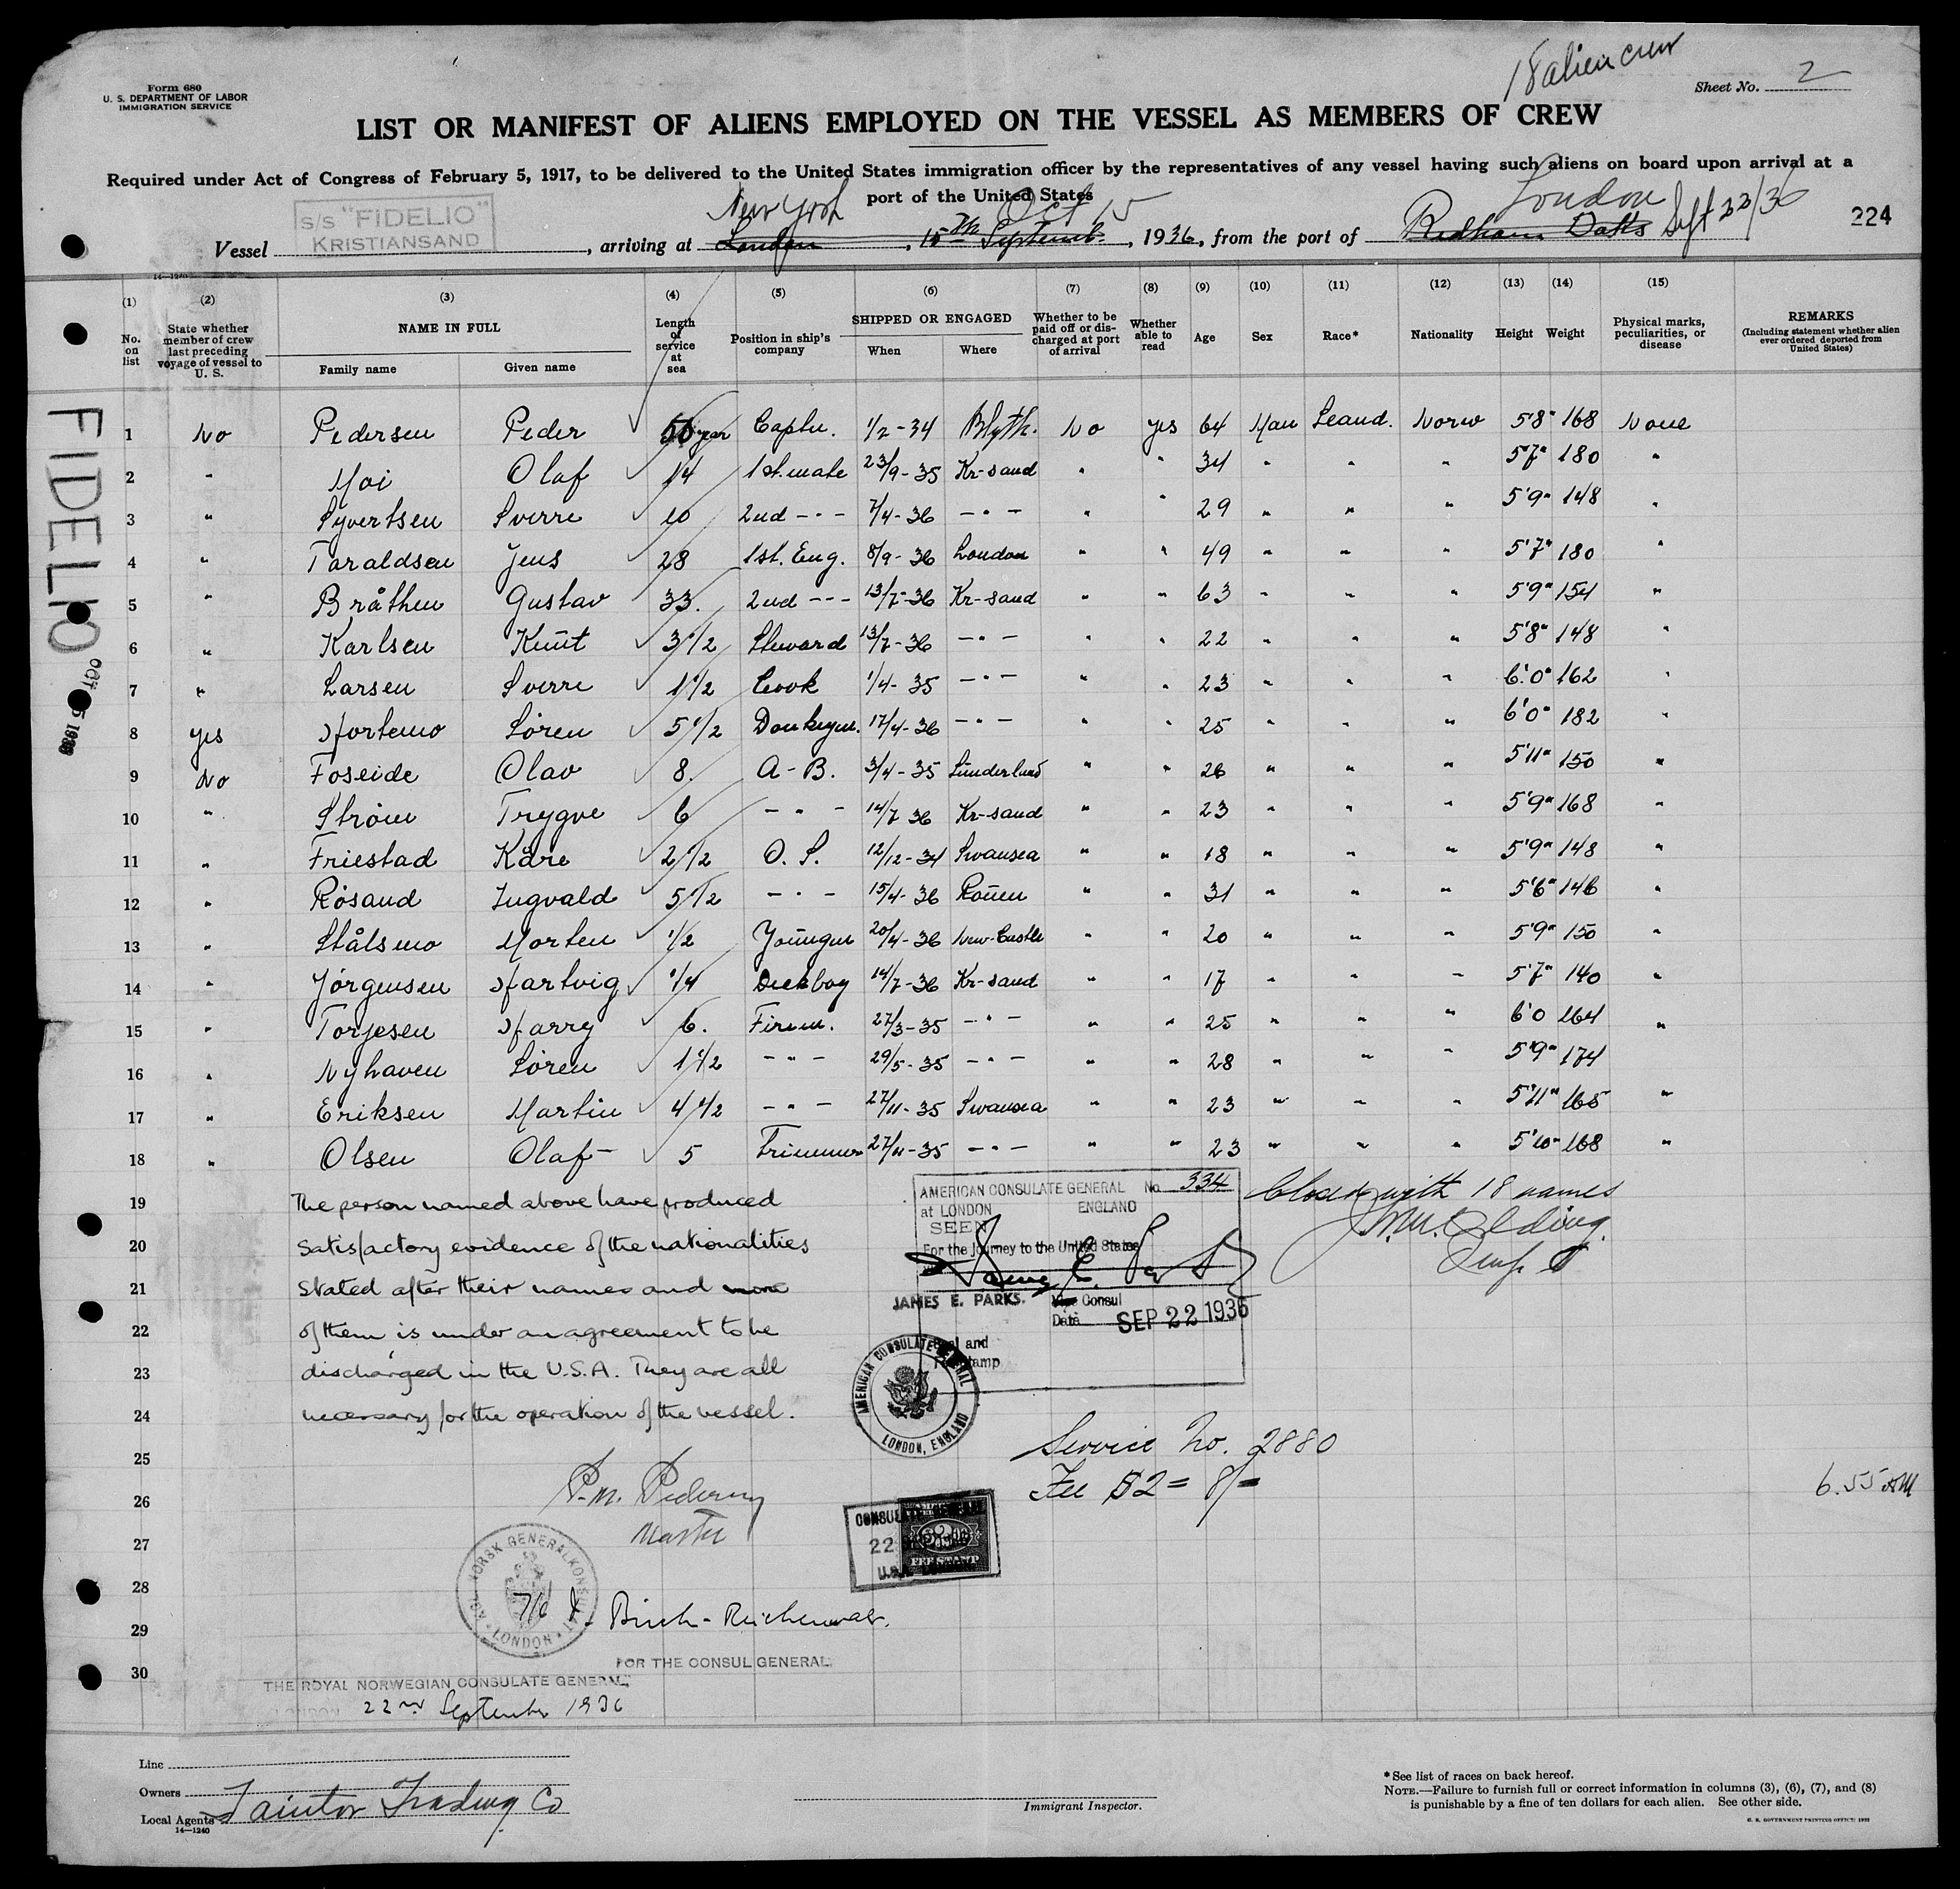 18 alien crew
Form 680
U. S. DEPARTMENT OF LABOR
IMMIGRATION SERVICE
Sheet No. 2
LIST OR MANIFEST OF ALIENS EMPLOYED ON THE VESSEL AS MEMBERS OF CREW
Required under Act of Congress of February 5, 1917, to be delivered to the United States immigration officer by the representatives of any vessel having such aliens on board upon arrival at a
port of the United States
New York Oct 15 London Sept 22/36
Vessel S/S "FIDELIO" KRISTIANSAND, arriving at London, 15th Septemb., 1936, from the port of 224
14—1240
(1) (2) (3) (4) (5) (6) (7) (8) (9) (10) (11) (12) (13) (14) (15)
No. on list
State whether member of crew last preceding voyage of vessel to U. S.
NAME IN FULL
Family name Given name
Length of service at sea
Position in ship's company
SHIPPED OR ENGAGED
When Where
Whether to be paid off or discharged at port of arrival
Whether able to read
Age Sex Race* Nationality Height Weight
Physical marks, peculiarities, or disease
REMARKS
(Including statement whether alien ever ordered deported from United States)
1 No Pedersen Peder 50 year Captn. 1/2-34 Blyth. No yes 64 Man Scand. Norw 5'8" 168 None
2 " Moi Olaf 14 1st. mate 23/9-35 Kr-sand " " 34 " " " 5'7" 180 "
3 " Syvertsen Sverre 10 2nd -"- 7/4-36 -"- " " 29 " " " 5'9" 148 "
4 " Taraldsen Jens 28 1st. Eng. 8/9-36 London " " 49 " " " 5'7" 180 "
5 " Bråthen Gustav 33. 2nd --- 13/7-36 Kr-sand " " 63 " " " 5'9" 154 "
6 " Karlsen Knut 3 1/2 Steward 13/7-36 -"- " " 22 " " " 5'8" 148 "
7 " Larsen Sverre 1 1/2 Cook 1/4-35 -"- " " 23 " " " 6'0" 162 "
8 yes Hortemo Sören 5 1/2 Donkeym. 17/4-36 -"- " 25 " " " 6'0" 182 "
9 No Foseide Olav 8. A-B. 3/4-35 Sunderland " " 26 " " " 5'11" 150 "
10 " Ström Trygve 6 -"- 14/7 36 Kr-sand " " 23 " " " 5'9" 168 "
11 " Friestad Kåre 2 1/2 O. S. 12/12-34 Swansea " " 18 " " " 5'9" 148 "
12 " Rösand Ingvald 5 1/2 -"- 15/4-36 Rouen " " 31 " " " 5'6" 146 "
13 " Stålsmo Morten 1/2 Youngm 20/4-36 New-Castle " " 20 " " " 5'9" 150 "
14 " Jörgensen Hartvig 1/4 Deckboy 14/7-36 Kr-sand " " 17 " " " 5'7" 140 "
15 " Torjesen Harry 6. Firem. 27/3-35 -"- " " 25 " " " 6'0 164 "
16 " Nyhaven Sören 1 1/2 -"- 29/5-35 -"- " " 28 " " " 5'9" 174
17 " Eriksen Martin 4 1/2 -"- 27/11-35 Swansea " " 23 " " " 5'11" 165 "
18 " Olsen Olaf 5 Trimmer 27/11-35 -"- " " 23 " " " 5'10" 168 "
19 The person named above have produced
20 satisfactory evidence of the nationalities
21 stated after their names and none
22 of them is under an agreement to be
23 discharged in the U.S.A. They are all
24 necessary for the operation of the vessel.
25
26
27
28
29
30
FIDELIO
OCT 15 1936
AMERICAN CONSULATE GENERAL No. 334
at LONDON ENGLAND
SEEN
For the journey to the United States
JAMES E. PARKS. Vice Consul
Date SEP 22 1936
Seal and
Fee Stamp
AMERICAN CONSULATE GENERAL
LONDON, ENGLAND
Closed with 18 names
Service No. 2880
Fee $2 = 8/-
6.55 AM
P. M. Pedersen
Master
CONSULATE GENERAL
22
FEE STAMP
KGL. NORSK GENERALKONSULAT
LONDON
7/6
Birch-Reichenwald.
FOR THE CONSUL GENERAL
THE ROYAL NORWEGIAN CONSULATE GENERAL,
LONDON 22nd September 1936
Line
Owners
Local Agents Taintor Trading Co
14—1240
Immigrant Inspector.
*See list of races on back hereof.
NOTE.—Failure to furnish full or correct information in columns (3), (6), (7), and (8)
is punishable by a fine of ten dollars for each alien. See other side.
U. S. GOVERNMENT PRINTING OFFICE: 1932